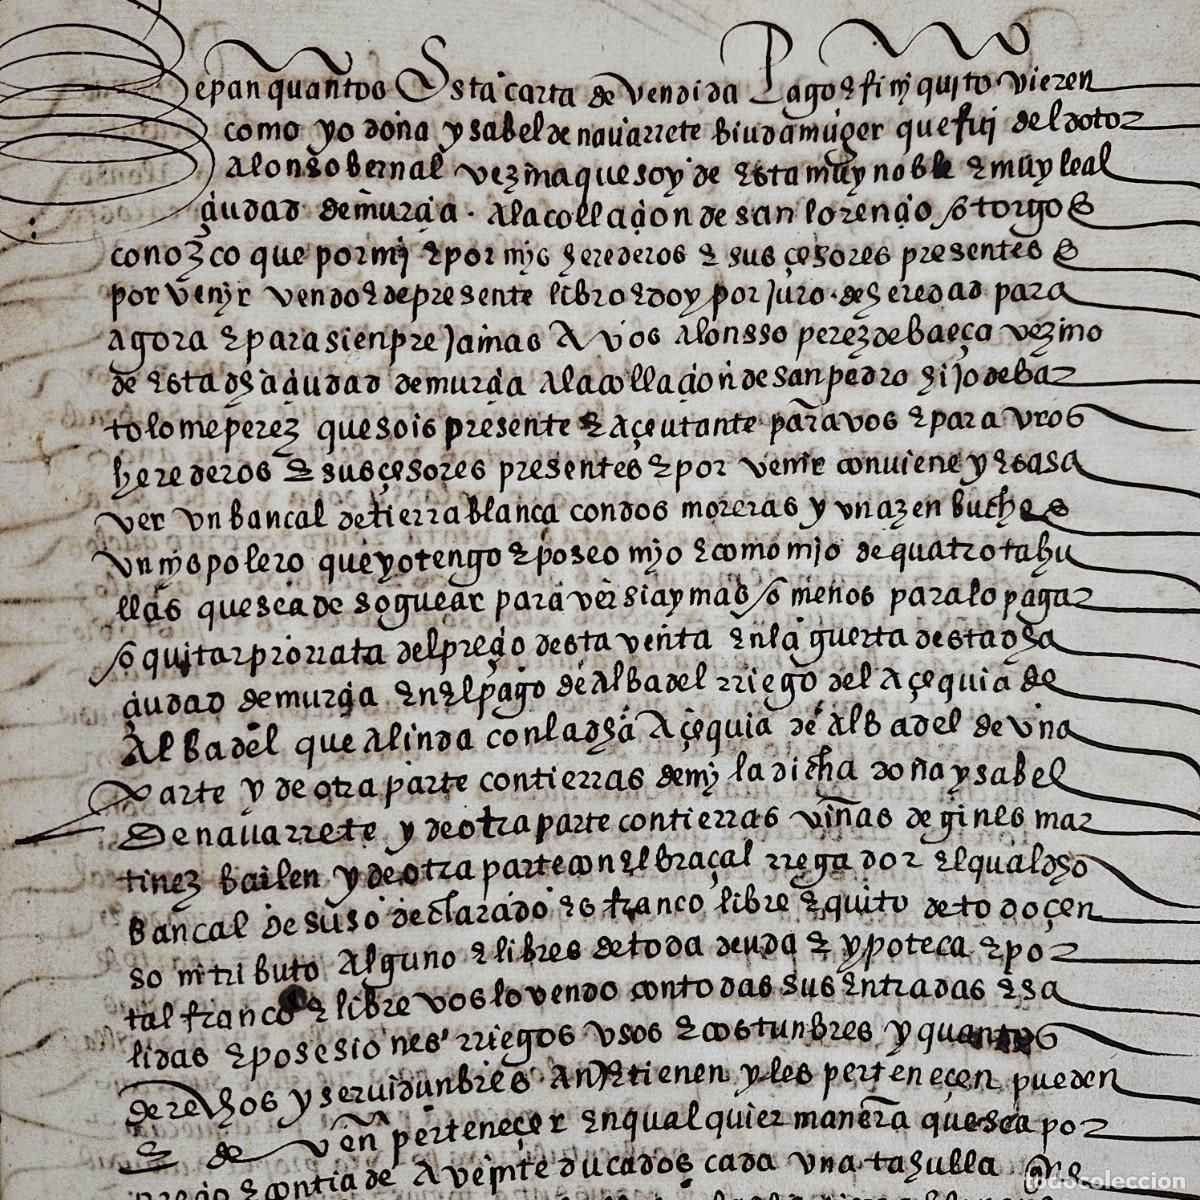 Sepan quantos Esta carta de vendida Pago & finy quito vieren
como yo doña ysabel de navarrete biuda muger que fuy del dotor
alonso bernal vezina que soy de esta muy noble & muy leal
çiudad de murçia. a la collaçion de san lorenço otorgo &
conozco que por my & por mys herederos & susçesores presentes &
por venyr vendo & de presente libro & doy por juro de heredad para
agora & para sienpre jamas A vos alonsso perez de baeça vezino
de esta dha çiudad de murçia a la collaçion de san pedro hijo de bar
tolome perez que sois presente & açeutante para vos & para vros
herederos & susçesores presentes & por venir conviene y es a sa
ver un bancal de tierra blanca con dos moreras y un azenbuche &
un myspolero que yo tengo & poseo mjo & como mjo de quatro tahu
llas que sea de soguear para ver si ay mas o menos para lo pagar
o quitar prorrata del preçio desta venta en la guerta desta dha
çiudad de murçia en el pago de Albadel rriego del Açequia de
Albadel que alinda con la dha Açequia de albadel de una
Parte y de otra parte con tierras de my la dicha doña ysabel
de navarrete y de otra parte con tierras viñas de gines mar
tinez bailen y de otra parte con el braçal rregador el qual dho
bancal de suso declarado es franco libre & quito de todo çen
so ni tributo alguno & libres de toda deuda & ypoteca & por
tal franco & libre vos lo vendo con todas sus entradas & sa
lidas & posesiones rriegos usos & costunbres y quantos
derechos y servidunbres an & tienen y les perteneçen pueden
& de ven perteneçer en qualquier manera que sea por
preçio & contia de a veinte ducados cada una tahulla
todocoleccion